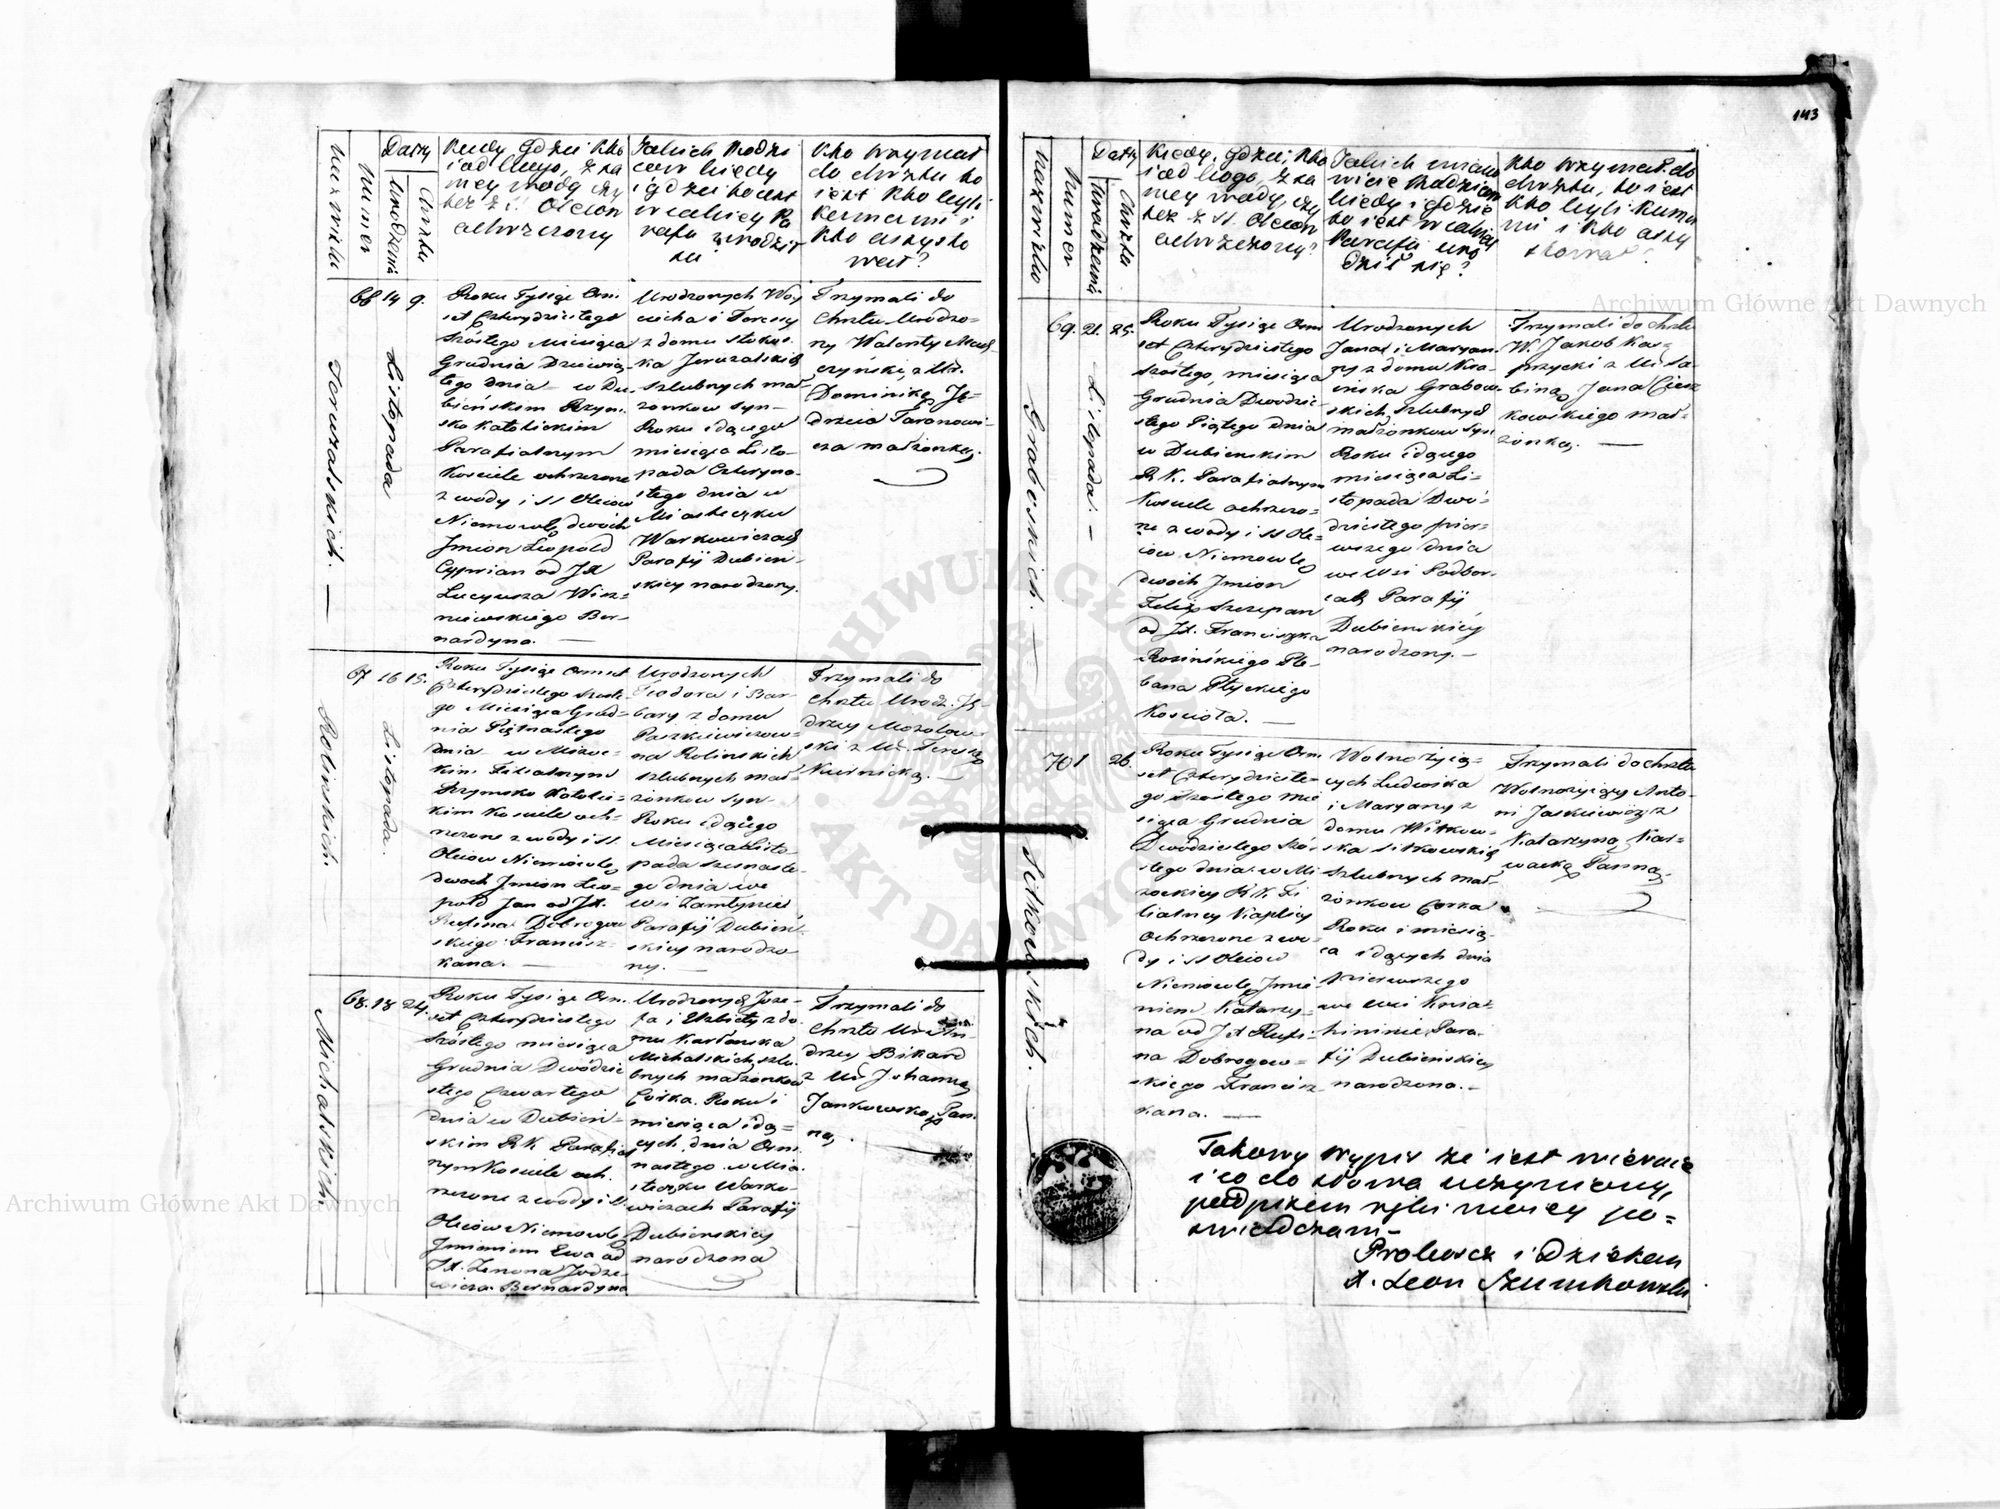 143
Nazwisko
Numer
Daty
Urodzenia
Chrztu
Kiedy, gdzie, kto
i od kogo, z sa
mey wody czy
też z SS. Oleiow
ochrzczony
Jakich Rodzi
cow kiedy
i gdzie to iest
w iakiey Pa
rafii urodził
się
Kto trzymał
do chrztu to
iest kto byli
kumami i
kto assysto
wał?
66
14
9.
Listopada
Jeruzalskich. —
Roku Tysiąc Ośm
set Czterydziestego
Szóstego Miesiąca
Grudnia Dziewią
tego dnia w Du
bieńskim Rzym
sko Katolickim
Parafialnym
Kościele ochrzczone
z wody i SS Oleiow
Niemowlę dwóch
Jmion Leopold
Cyprian od JX
Lucyusza Wisz=
niewskiego Ber=
nardyna. —
Urodzonych Woy
ciecha i Teressy
z domu
ka Jeruzalskich
szlubnych mał=
żonkow syn—
Roku idącego
miesiąca Listo=
pada Czteryna=
stego dnia w
Miasteczku
Warkowiczach
Parafij Dubień=
skiey narodzony.
Trzymali do
Chrztu Urodzo=
ny Walenty
z Ur.
Dominiką Ję=
drzeia Taranowi=
cza małżonką.
67
16
15.
Listopada.
Rolinskich.
Roku Tysiąc Ośmset
Czterydziestego Szóste=
go Miesiąca Grud=
nia Piętnastego
dnia w Mizoc=
kim Filialnym
Rzymsko Katolic=
kim Kościele och=
rzczone z wody i SS.
Oleiow Niemowlę
dwóch Jmion Leo=
pold Jan od JX.
Rufina Dobrogow
skiego Francisz=
kana. —
Urodzonych
Teodora i Bar=
bary z domu
Paszkiewiczow=
na Rolinskich
szlubnych mał=
żonkow syn=
Roku idącego
Miesiąca Listo=
pada szesnaste=
go dnia we
wsi
Parafij Dubień=
skiey narodzo=
ny. —
Trzymali do
Chrztu Urodz. Ję=
drzey Mozolow=
ski z Ur. Teressą
Kuśnicką. —
68.
18
24.
Michalskich.
Roku Tysiąc Ośm=
set Czterydziestego
Szóstego miesiąca
Grudnia Dwódzie
stego Czwartego
dnia w Dubień=
skim R.K. Parafial
nym Kościele och=
rzczone z wody i SS.
Oleiów Niemowlę
Jmieniem Ewa od
JX. Zenona Jodze=
wicza Bernardyna
Urodzonych Joze=
fa i Elżbiety z do=
mu Karłonska
Michalskich szlu=
bnych małżonkow
Córka. Roku i
miesiąca idą=
cych dnia Ośm=
nastego w Mia=
steczku Warko=
wiczach Parafij
Dubienskiey
narodzona
Trzymali do
Chrztu Ur. An=
drzey Bikard
z Ur. Johanną
Jankowską Pan=
ną.
Nazwisko
Numer
Daty
Urodzenia
Chrztu
Kiedy, gdzie, kto
i od kogo, z sa
mey wody, czy
też z SS. Oleiow
ochrzczony?
Jakich miano
wicie Rodzicow
kiedy i gdzie
to iest w iakiey
Parafii uro
dził się?
Kto trzymał do
chrztu, to iest
kto byli kuma
mi i kto assy
stował?
69.
21.
25.
Listopada. —
Grabowskich. —
Roku Tysiąc Ośm
set Czterydziestego
Szóstego, miesiąca
Grudnia Dwódzie=
stego Piątego dnia
w Dubienskim
R.K. Parafialnym
Kościele ochrzczo=
ne z wody i SS Ole=
iow Niemowlę
dwóch Jmion
Felix Szczepan
od JX. Franciszka
Rosińskiego Ple=
bana Ptyckiego
Kościoła. —
Urodzonych
Jana i Maryan=
ny z domu Kra=
sinska Grabow=
skich szlubnych
małżonkow syn
Roku idącego
miesiąca Li=
stopada Dwó=
dziestego pier=
wszego dnia
we Wsi Podbor=
cach Parafij
Dubienskiey
narodzony. —
Trzymali do chrztu
W. Jakob Kas=
przycki z Ur. Sa=
biną Jana Ciesz
kowskiego mał=
żonką. —
70
1
26.
Sitkowskich.
Roku Tysiąc Ośm
set Czterydzieste=
go Szóstego Mie
siąca Grudnia
Dwódziestego Szó=
stego dnia w Mi
zockiey R.K. Fi
lialney Kaplicy
Ochrzczone z wo=
dy i SS Oleiow
Niemowlę Jmie=
niem Katarzy=
na od JX Rufi=
na Dobrogow=
skiego Francisz=
kana. —
Wolno Żyią=
cych Ludwika
i Maryanny z
domu Witkow=
ska Sitkowskich
szlubnych mał=
żonkow Córka
Roku i miesią=
ca idących dnia
Pierwszego
we Wsi Knia=
hininie Para=
fij Dubieńskiey
narodzona. —
Trzymali do chrztu
Wolnożyiący Anto=
ni Jaskiewicz z
Katarzyną Kar=
wacką Panną.
Takowy wypis że iest wiernie
i co do słowa uczyniony,
podpisem ręki moiey po=
świadczam—
Proboszcz i Dziekan
X. Leon Szumkowski
Archiwum Główne Akt Dawnych
Archiwum Główne Akt Dawnych
ARCHIWUM GŁÓWNE
AKT DAWNYCH